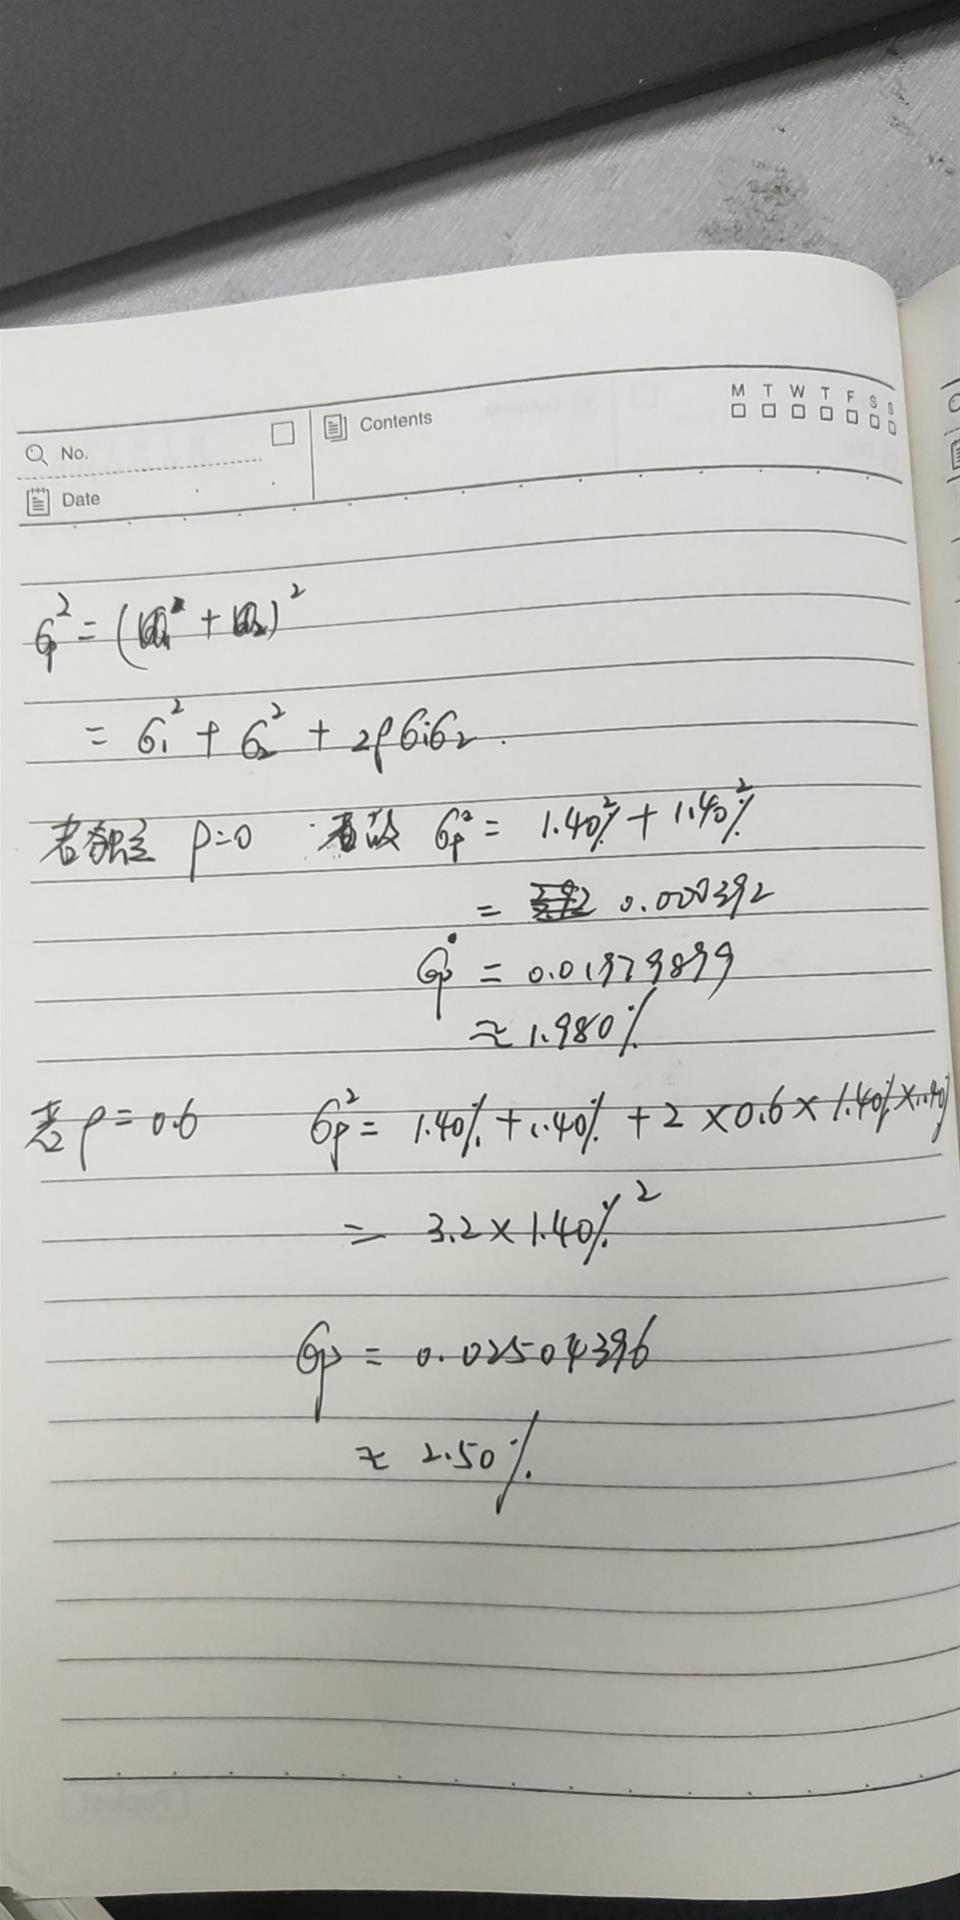 M T W T F S S
No.
Contents
Date
σp² = ( + )²
= σ₁² + σ₂² + 2ρσ₁σ₂.
若独立 ρ=0 故 σp² = 1.40%² + 1.40%²
= 0.000392
σp = 0.01979899
≈ 1.980%
若 ρ = 0.6 σp² = 1.40% + 1.40% + 2 × 0.6 × 1.40% × 1.40%
= 3.2 × 1.40%²
σp = 0.02504396
≈ 2.50%